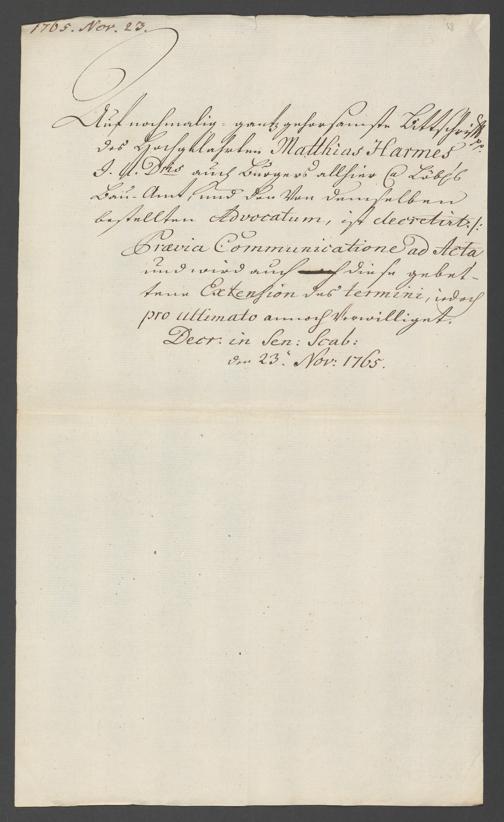 1765. Nov. 23.
Auf nochmalig-gantz gehorsamste Bittschrifft
des Hochgelahrten Matthias Harmes
J. U. Dris auch Burgers allhier Ca Löbl.
Bau-Amt, und den von demselben
bestellten Advocatum, ist decretirt:/:
Prævia Communicatione ad Acta
und wird auch diese gebet-
tene Extension des termini, iedoch
pro ultimato annoch verwilliget.
Decr. in Sen: Scab:
den 23. Nov: 1765.